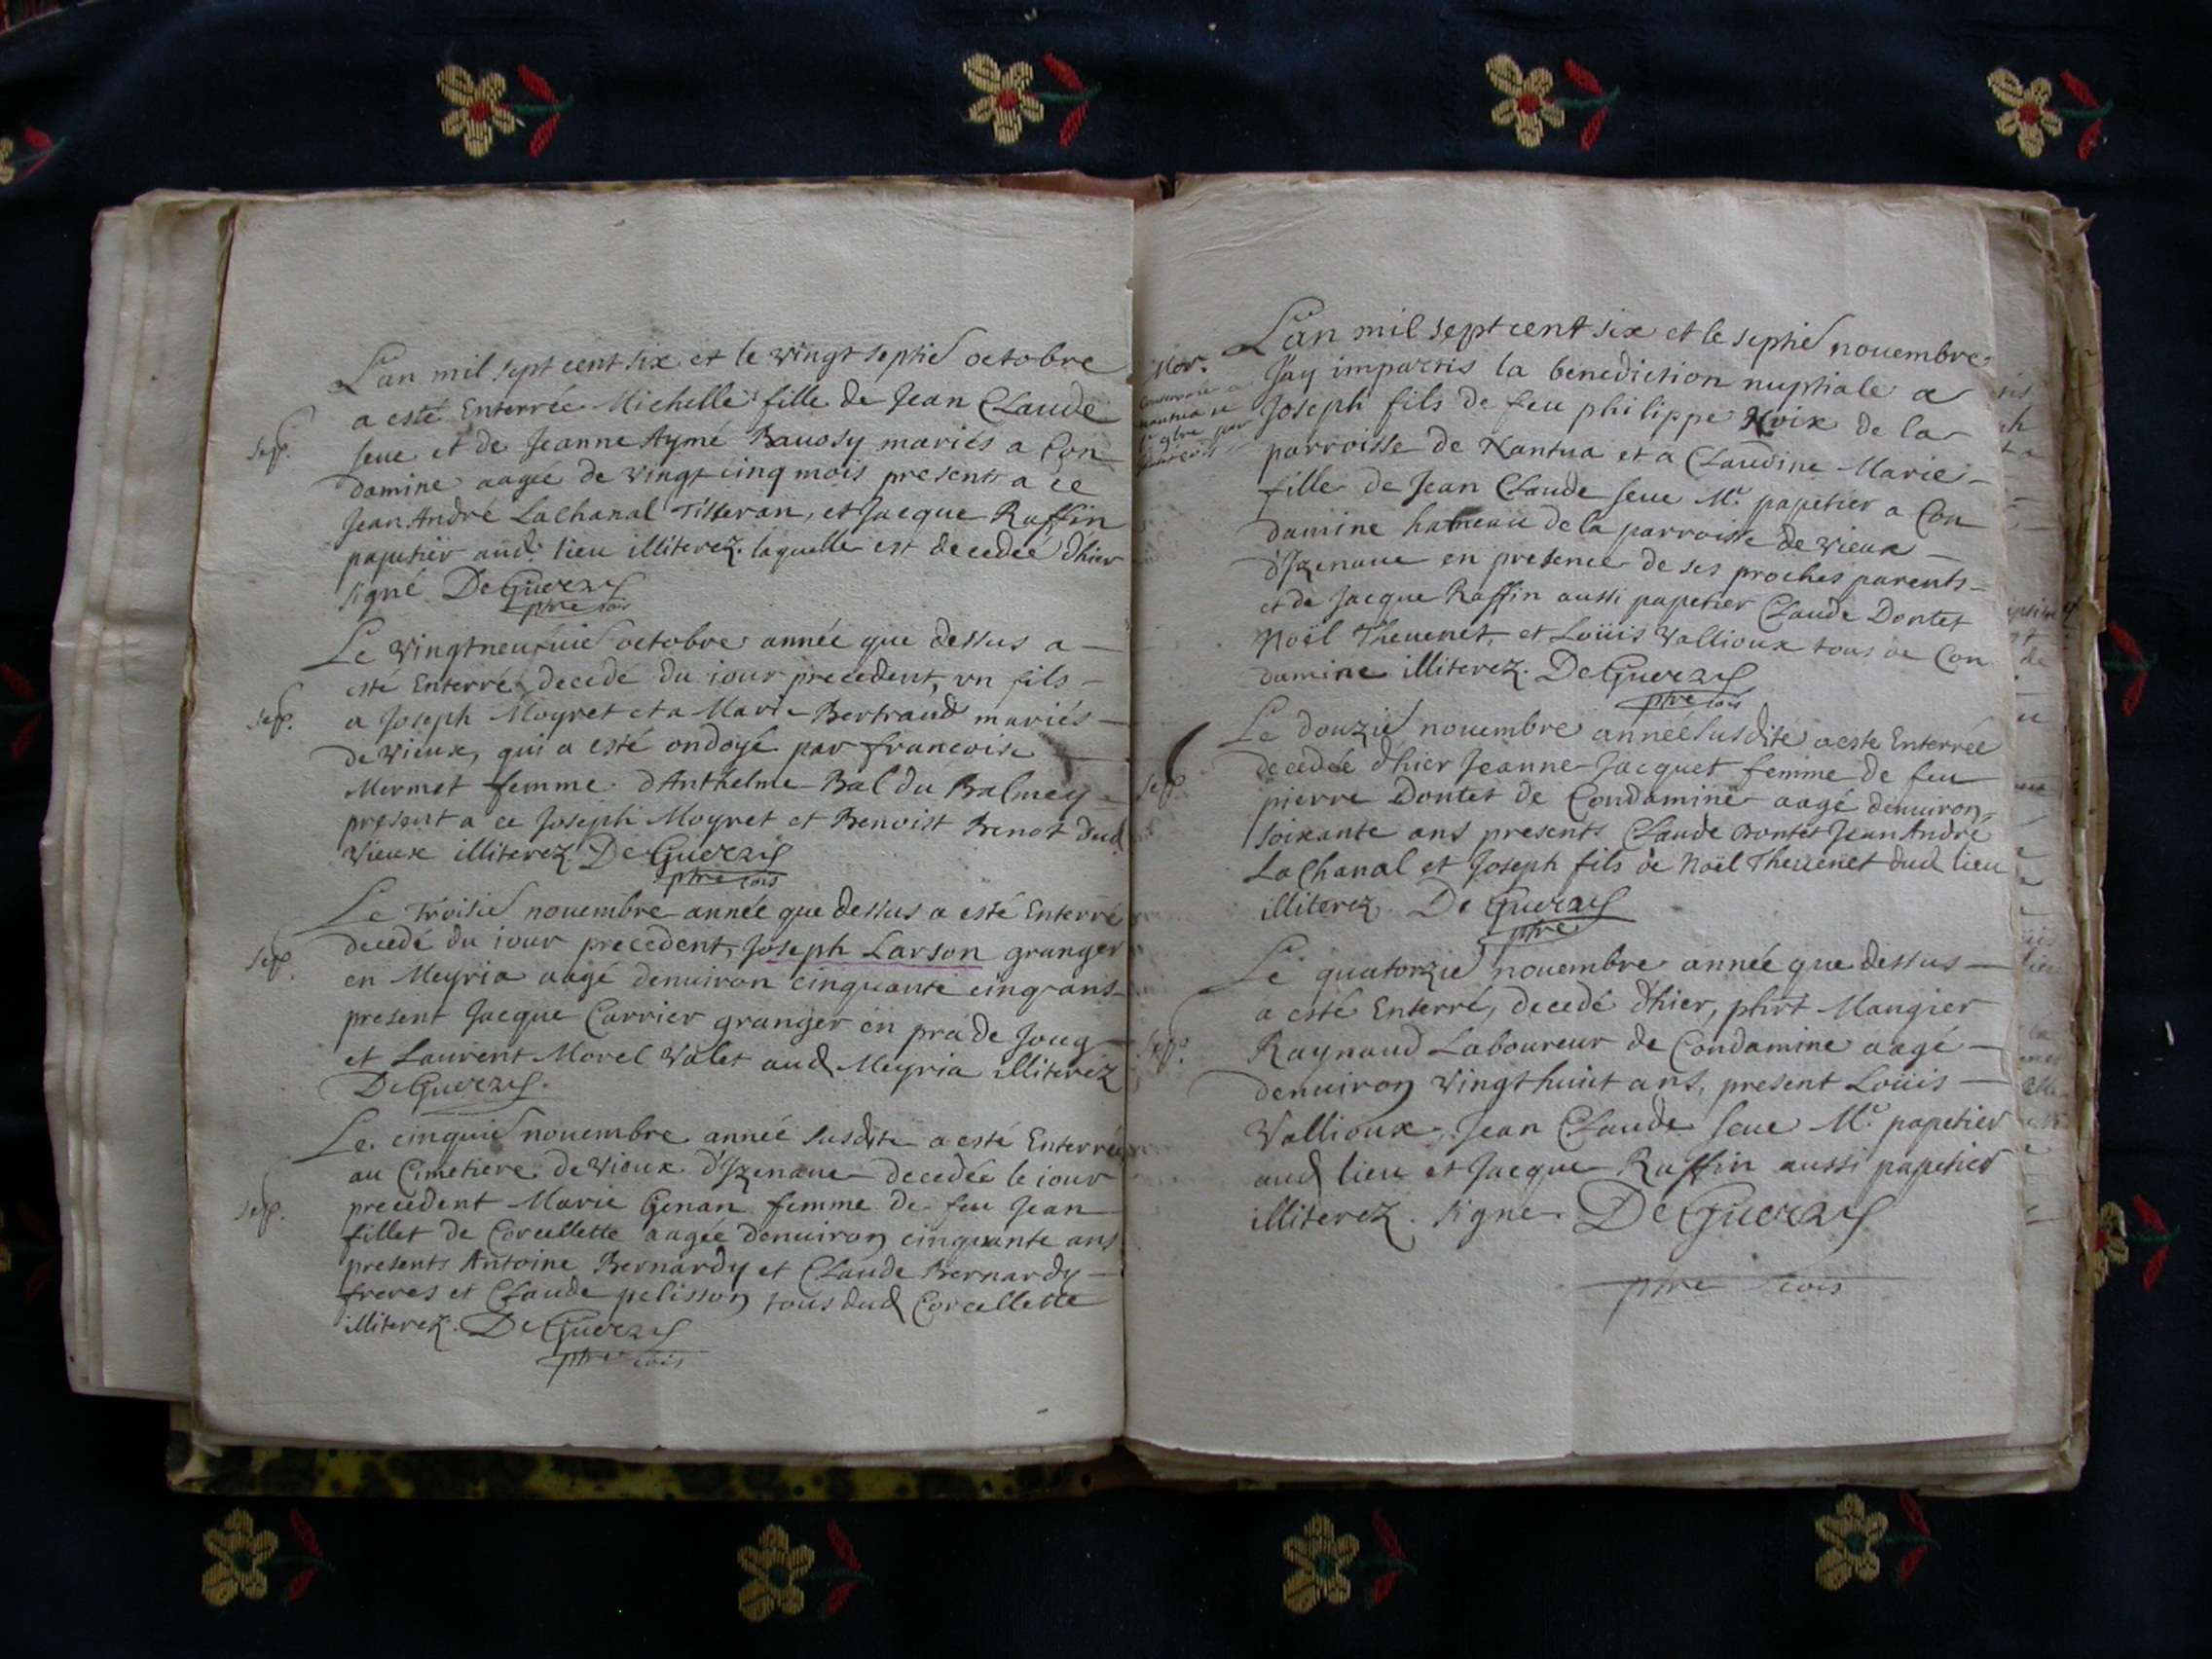 L'an mil sept cent six et le vingt septie octobre
a esté Enterrée Michelle fille de Jean Claude
Sep.
seue et de Jeanne Aymé Bauosy mariés a Con
damine aagée de vingt cinq mois presents a ce
Jean André Lachanal Tisseran, et Jacque Raffin
papetier aud. lieu illiterez. laquelle est decedée d'hier
signé DeGuerry
ptre
Le vingtneufuie octobre année que dessus a
esté Enterré decedé du iour precedent, vn fils
Sep.
a Joseph Moyret et a Marie Bertrand mariés
de vieux, qui a esté ondoyé par francoise
Mermet femme d'Anthelme Bal du Balmey
present a ce Joseph Moyret et Benoist Benoit dud
vieux illiterez. DeGuerry
ptre
Le troisie nouembre année que dessus a esté Enterré
decedé du iour precedent, Joseph Larson granger
Sep.
en Meyria aagé denuiron cinquante cinq ans
present Jacque Carrier granger en pra de Joug
et Laurent Morel valet aud Meyria illiterez
DeGuerry.
Le cinquie nouembre année susdite a esté Enterrée
au Cimetiere de vieux d'Izenaue decedée le iour
Sep.
precedent Marie Genan femme de feu Jean
fillet de Corcellette aagée denuiron cinquante ans
presents Antoine Bernardy et Claude Bernardy
freres et Claude pelisson tous dud Corcellette
illiterez. DeGuerry
ptre
L'an mil sept cent six et le septie nouembre
Mar.
Jay impartis la benediction nuptiale a
Joseph fils de feu philippe Noix de la
parroisse de Nantua et a Claudine Marie
fille de Jean Claude seue Mr. papetier a Con
damine hameau de la parroisse de vieux
d'Izenaue en presence de ses proches parents
et de Jacque Raffin aussi papetier Claude Dontet
Noël Theuenet, et Loüis Vallioux tous de Con
damine illiterez. DeGuerry
ptre
Le douzie nouembre année susdite a esté Enterrée
decedée d'hier Jeanne Jacquet femme de feu
Sep.
pierre Dontet de Condamine aagé denuiron
soixante ans presents Claude Dontet Jean André
LaChanal et Joseph fils de Noël Theuenet dud lieu
illiterez. DeGuerry
ptre
Le quatorzie nouembre année que dessus
a esté Enterré, decedé d'hier, Mangier
Sep.
Raynaud Laboureur de Condamine aagé
denuiron vingt huit ans, present Loüis
Vallioux, Jean Claude seue Mr. papetier
aud lieu et Jacque Raffin aussi papetier
illiterez. signé. DeGuerry
ptre